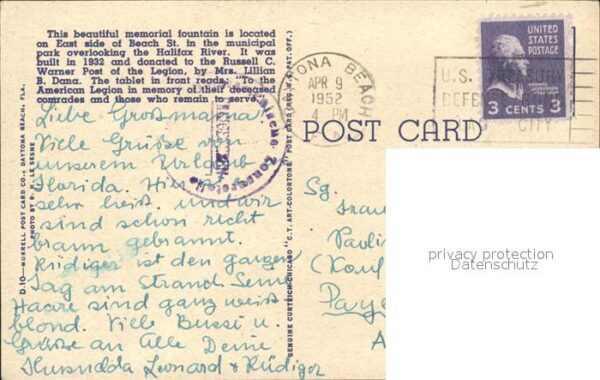 This beautiful memorial fountain is located
on East side of Beach St. in the municipal
park overlooking the Halifax River. It was
built in 1932 and donated to the Russell C.
Warner Post of the Legion, by Mrs. Lillian
B. Dana. The tablet in front reads: "To the
American Legion in memory of their deceased
comrades and those who remain to serve."
Liebe Großmama!
Viele Grüße von
unserem Urlaub
Florida. Hier
sehr heiß. und wir
sind schon richt
braun gebrannt.
Rüdiger ist den ganzen
Tag am Strand. Seine
Haare sind ganz weiß
blond. Viele Bussi u.
Grüße an Alle Deine
Leonard & Rüdiger
D.10—NURRELL POST CARD CO., DAYTONA BEACH, FLA.
PHOTO BY R. H. LE SESNE
GENUINE CURTEICH-CHICAGO "C.T. ART-COLORTONE" POST CARD (REG. U.S. PAT. OFF.)
TONA BEACH
APR 9
1952
4 PM
U.S.
DEFEN
CITY
UNITED
STATES
POSTAGE
3 CENTS 3
POST CARD
Sg.
Frau
Paulin
(Kauf
Paye
A
privacy protection
Datenschutz